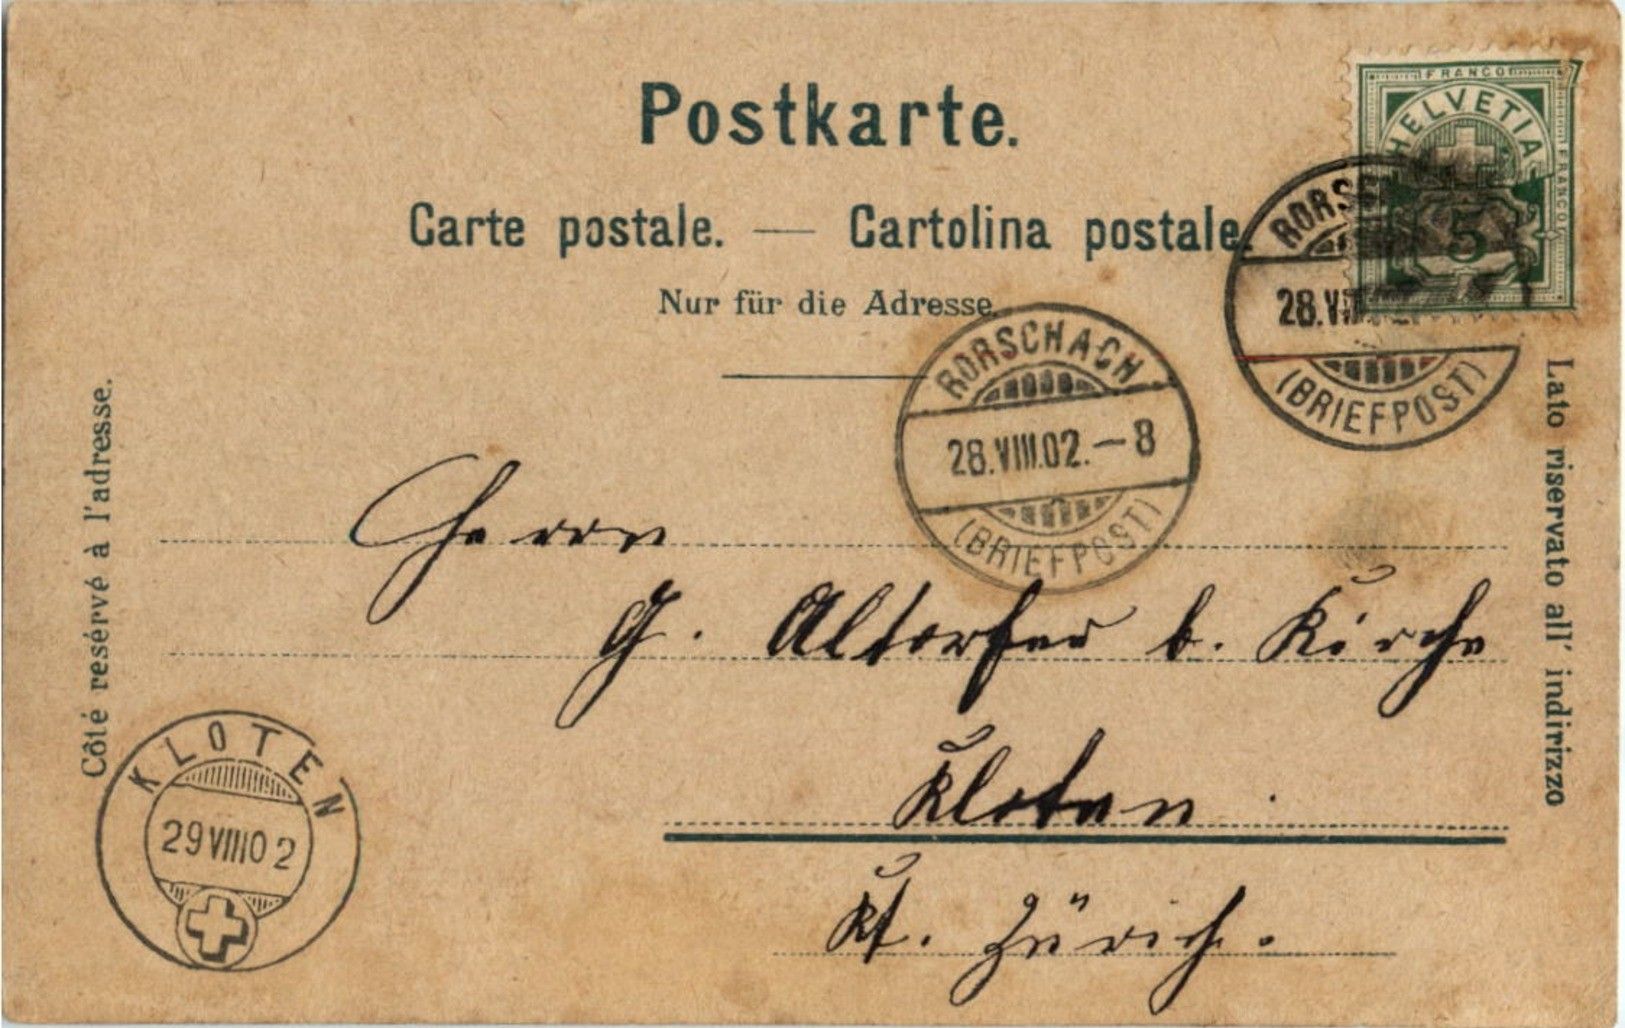 Postkarte.
Carte postale. — Cartolina postale.
Nur für die Adresse.
FRANCO
HELVETIA
FRANCO
5
RORSCHACH
28.VIII.02.–8
(BRIEFPOST)
RORSCH
28.VIII
(BRIEFPOST)
Côté resérvé à l'adresse.
Lato riservato all' indirizzo
Herrn
G. Altorfer b. Kirche
Kloten
Kt. Zürich.
KLOTEN
29 VIII 02